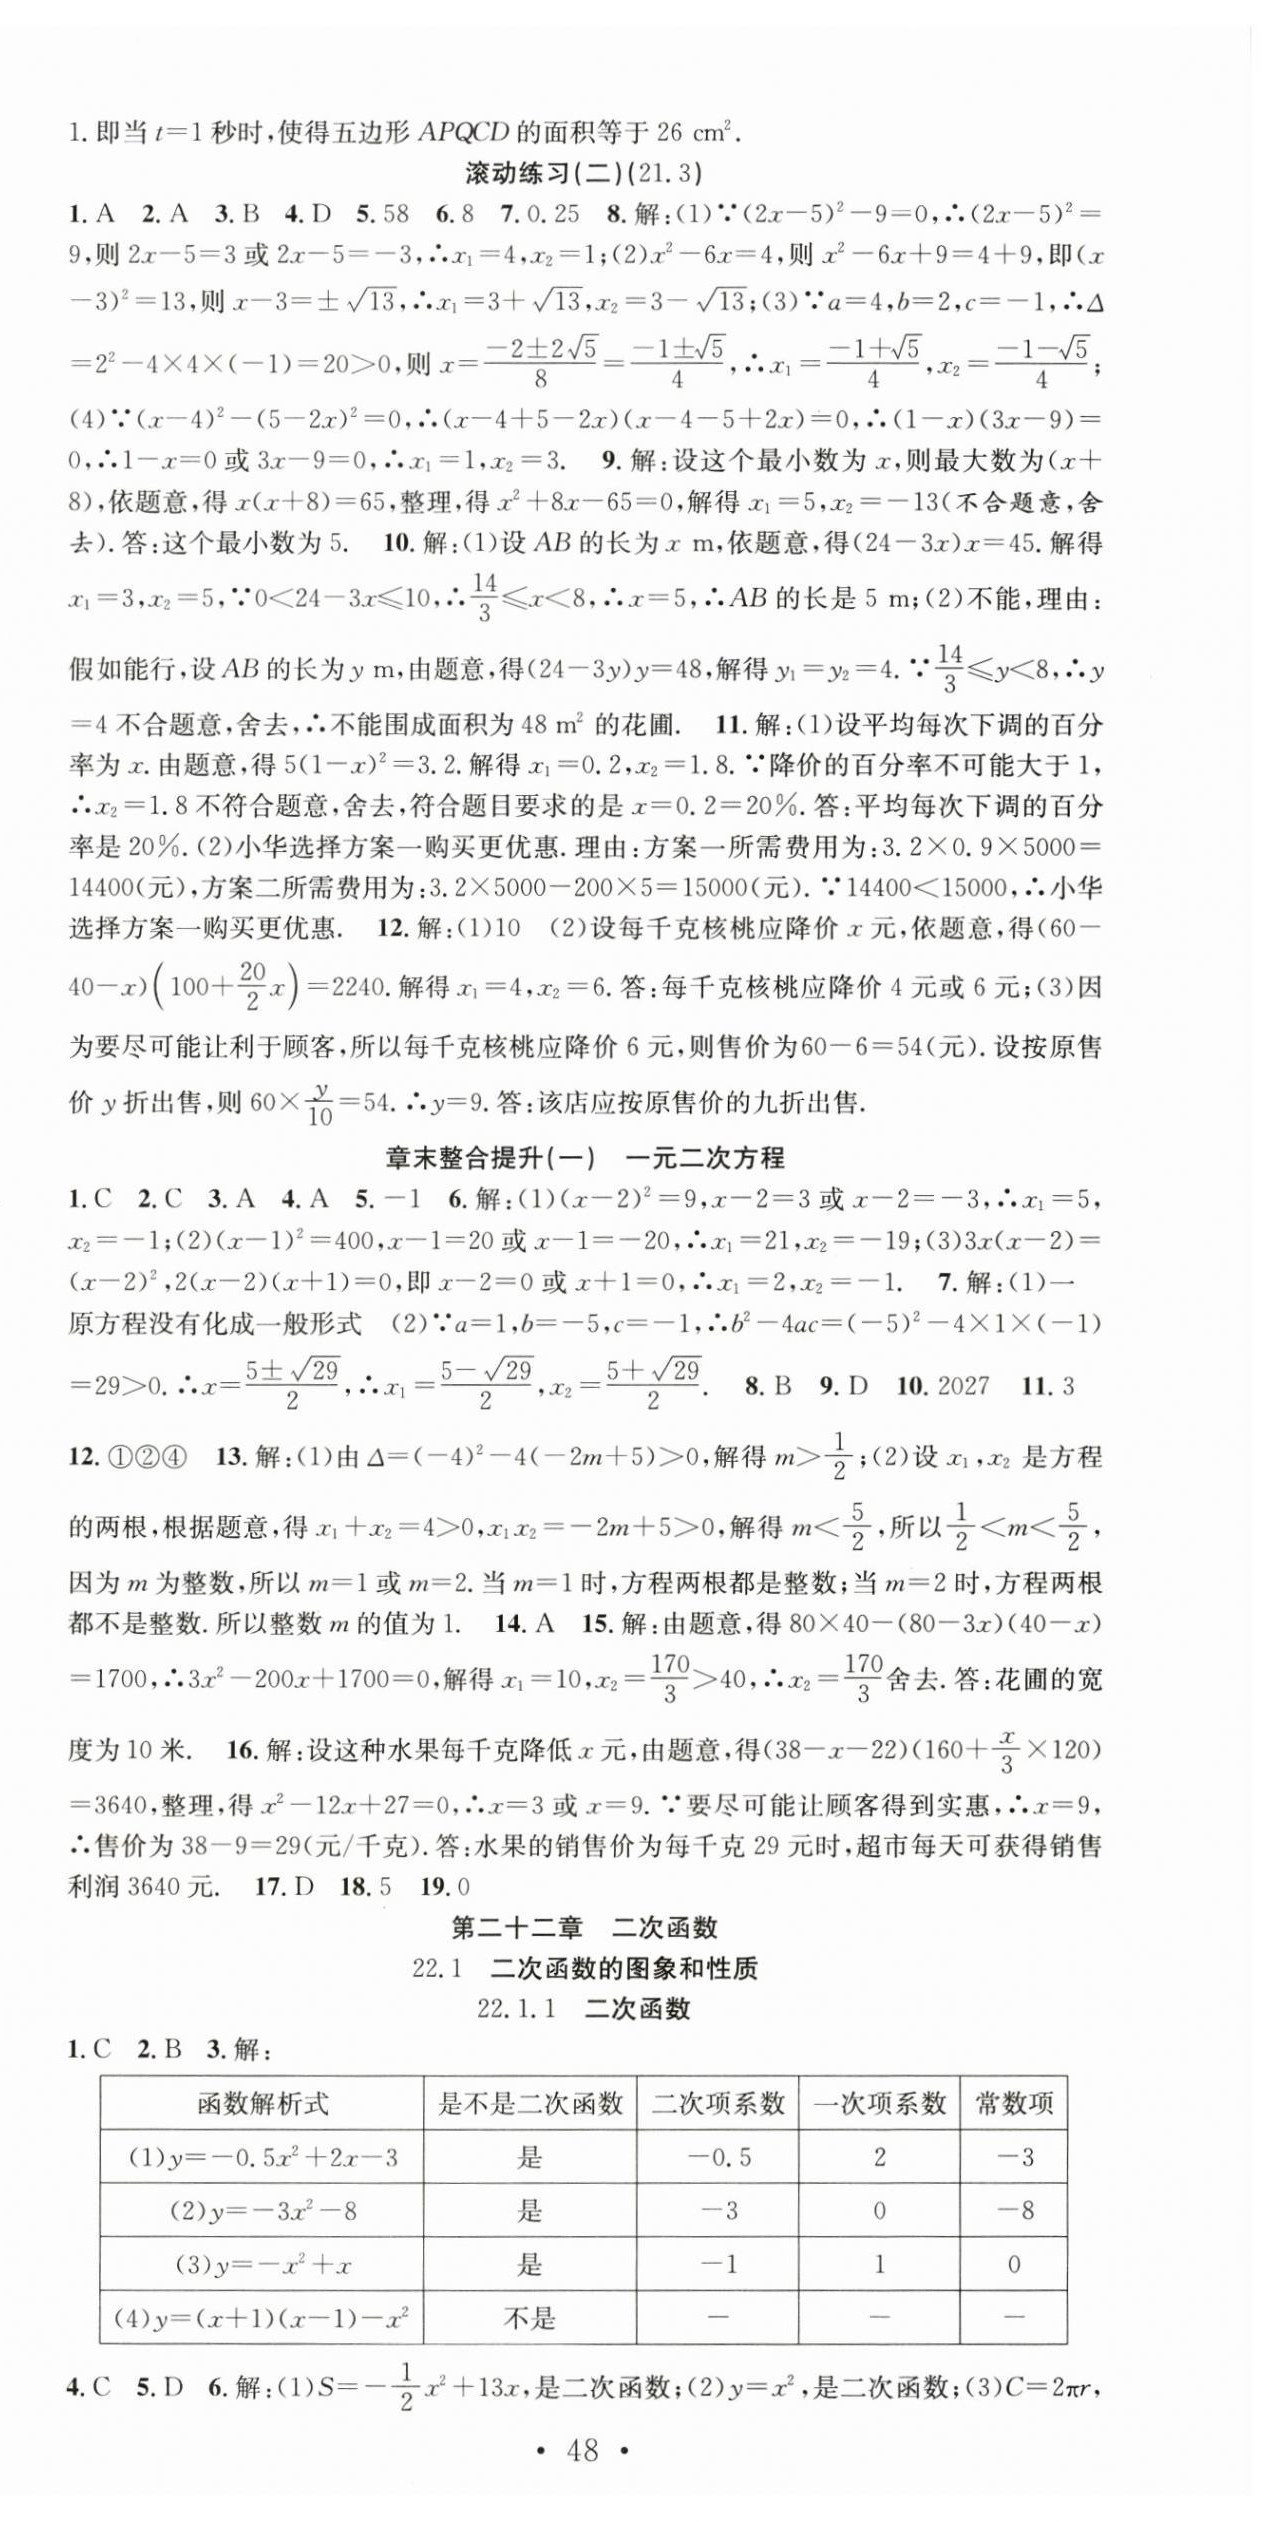 1. 即当 t=1 秒时,使得五边形 APQCD 的面积等于 26 cm².
滚动练习(二)(21.3)
1. A 2. A 3. B 4. D 5. 58 6. 8 7. 0.25 8. 解:(1)∵(2x−5)²−9=0,∴(2x−5)²=
9,则 2x−5=3 或 2x−5=−3,∴x₁=4,x₂=1;(2)x²−6x=4,则 x²−6x+9=4+9,即(x
−3)²=13,则 x−3=±√13,∴x₁=3+√13,x₂=3−√13;(3)∵a=4,b=2,c=−1,∴Δ
=2²−4×4×(−1)=20>0,则 x=(−2±2√5)/8=(−1±√5)/4,∴x₁=(−1+√5)/4,x₂=(−1−√5)/4;
(4)∵(x−4)²−(5−2x)²=0,∴(x−4+5−2x)(x−4−5+2x)=0,∴(1−x)(3x−9)=
0,∴1−x=0 或 3x−9=0,∴x₁=1,x₂=3. 9. 解:设这个最小数为 x,则最大数为(x+
8),依题意,得 x(x+8)=65,整理,得 x²+8x−65=0,解得 x₁=5,x₂=−13(不合题意,舍
去). 答:这个最小数为 5. 10. 解:(1)设 AB 的长为 x m,依题意,得(24−3x)x=45. 解得
x₁=3,x₂=5,∵0<24−3x≤10,∴14/3≤x<8,∴x=5,∴AB 的长是 5 m;(2)不能,理由:
假如能行,设 AB 的长为 y m,由题意,得(24−3y)y=48,解得 y₁=y₂=4. ∵14/3≤y<8,∴y
=4 不合题意,舍去,∴不能围成面积为 48 m² 的花圃. 11. 解:(1)设平均每次下调的百分
率为 x. 由题意,得 5(1−x)²=3.2. 解得 x₁=0.2,x₂=1.8. ∵降价的百分率不可能大于 1,
∴x₂=1.8 不符合题意,舍去,符合题目要求的是 x=0.2=20%. 答:平均每次下调的百分
率是 20%. (2)小华选择方案一购买更优惠. 理由:方案一所需费用为:3.2×0.9×5000=
14400(元),方案二所需费用为:3.2×5000−200×5=15000(元). ∵14400<15000,∴小华
选择方案一购买更优惠. 12. 解:(1)10 (2)设每千克核桃应降价 x 元,依题意,得(60−
40−x)(100+20/2x)=2240. 解得 x₁=4,x₂=6. 答:每千克核桃应降价 4 元或 6 元;(3)因
为要尽可能让利于顾客,所以每千克核桃应降价 6 元,则售价为60−6=54(元). 设按原售
价 y 折出售,则 60×y/10=54. ∴y=9. 答:该店应按原售价的九折出售.
章末整合提升(一) 一元二次方程
1. C 2. C 3. A 4. A 5. −1 6. 解:(1)(x−2)²=9,x−2=3 或 x−2=−3,∴x₁=5,
x₂=−1;(2)(x−1)²=400,x−1=20 或 x−1=−20,∴x₁=21,x₂=−19;(3)3x(x−2)=
(x−2)²,2(x−2)(x+1)=0,即 x−2=0 或 x+1=0,∴x₁=2,x₂=−1. 7. 解:(1)一
原方程没有化成一般形式 (2)∵a=1,b=−5,c=−1,∴b²−4ac=(−5)²−4×1×(−1)
=29>0. ∴x=(5±√29)/2,∴x₁=(5−√29)/2,x₂=(5+√29)/2. 8. B 9. D 10. 2027 11. 3
12. ①②④ 13. 解:(1)由 Δ=(−4)²−4(−2m+5)>0,解得 m>1/2;(2)设 x₁,x₂ 是方程
的两根,根据题意,得 x₁+x₂=4>0,x₁x₂=−2m+5>0,解得 m<5/2,所以 1/2<m<5/2,
因为 m 为整数,所以 m=1 或 m=2. 当 m=1 时,方程两根都是整数;当 m=2 时,方程两根
都不是整数. 所以整数 m 的值为 1. 14. A 15. 解:由题意,得 80×40−(80−3x)(40−x)
=1700,∴3x²−200x+1700=0,解得 x₁=10,x₂=170/3>40,∴x₂=170/3舍去. 答:花圃的宽
度为 10 米. 16. 解:设这种水果每千克降低 x 元,由题意,得(38−x−22)(160+x/3×120)
=3640,整理,得 x²−12x+27=0,∴x=3 或 x=9. ∵要尽可能让顾客得到实惠,∴x=9,
∴售价为 38−9=29(元/千克). 答:水果的销售价为每千克 29 元时,超市每天可获得销售
利润 3640 元. 17. D 18. 5 19. 0
第二十二章 二次函数
22.1 二次函数的图象和性质
22.1.1 二次函数
1. C 2. B 3. 解:
函数解析式 是不是二次函数 二次项系数 一次项系数 常数项
(1)y=−0.5x²+2x−3 是 −0.5 2 −3
(2)y=−3x²−8 是 −3 0 −8
(3)y=−x²+x 是 −1 1 0
(4)y=(x+1)(x−1)−x² 不是 — — —
4. C 5. D 6. 解:(1)S=−1/2x²+13x,是二次函数;(2)y=x²,是二次函数;(3)C=2πr,
• 48 •